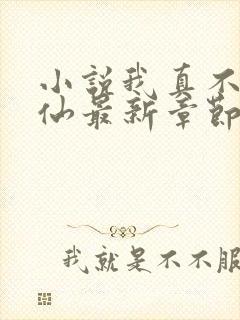 小說我真不
仙最新章節
我就是不不服